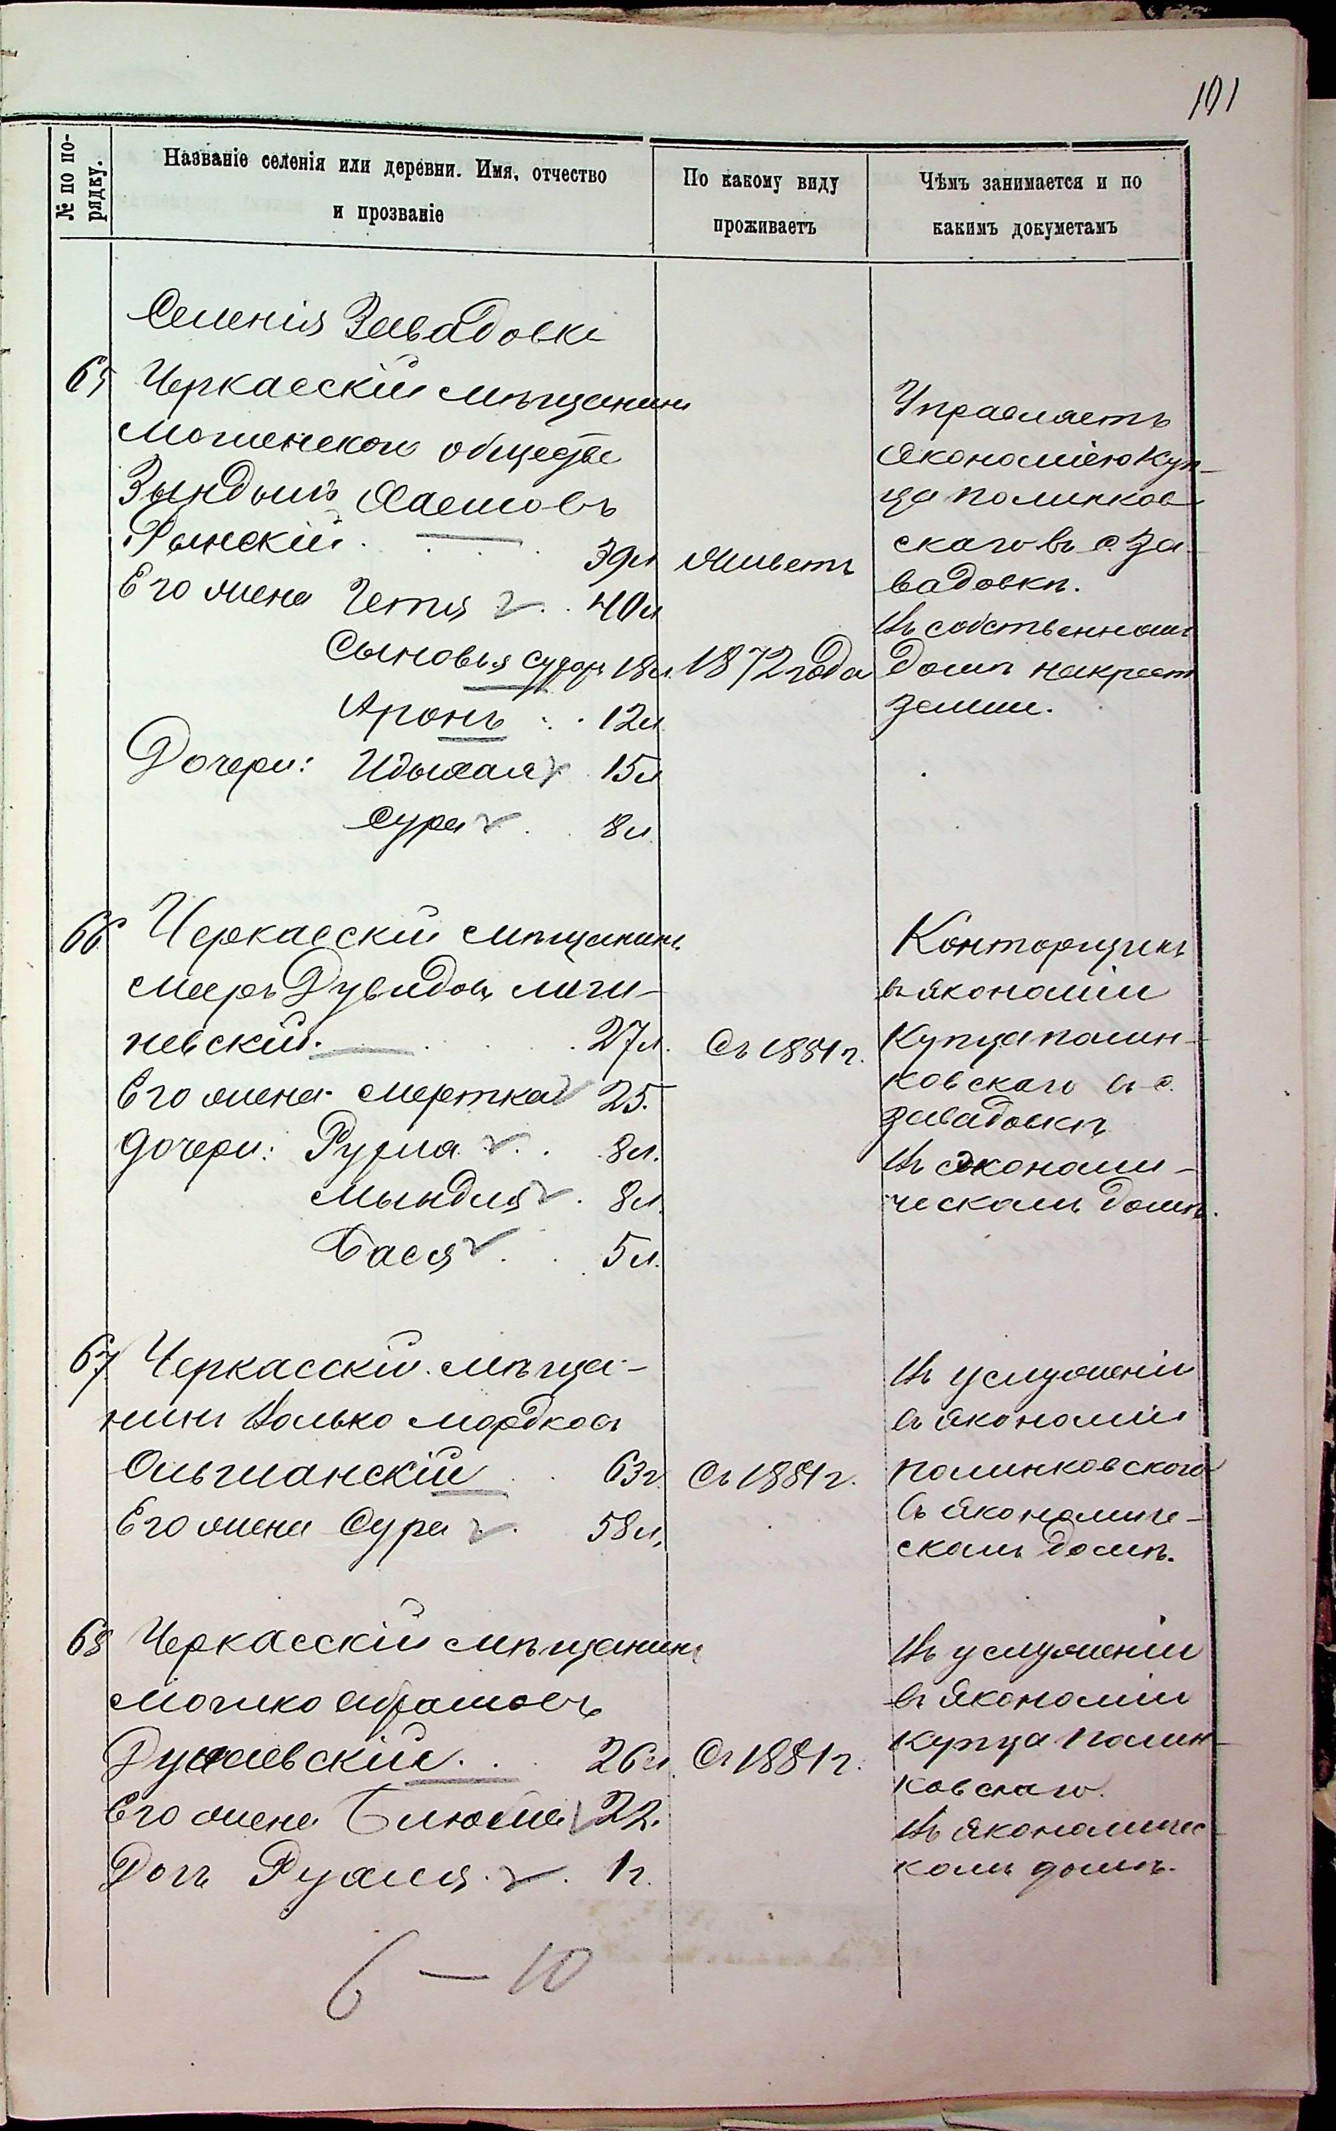 101
№ по по-
рядку.
Названіе селенія или деревни. Имя, отчество
и прозваніе
По какому виду
проживаетъ
Чѣмъ занимается и по
какимъ докуметамъ
Селенія Завадовки
65 Черкасскій мѣщанинъ
общества
Хаимовъ
Рынскій 39л живетъ
Его жена Гитля 40л
Сыновья 18л. 1872 года
Аронъ 12л
Дочери: 15л
Сура 8л.
Управляетъ
экономіею куп-
ца Полинков
скаго въ с. За-
вадовкѣ.
Въ собственномъ
домѣ на крест
земли.
66 Черкасскій мѣщанинъ
Мееръ Дувидовъ Лиги-
невскій 27л. Съ 1881 г.
Его жена 25.
Дочери: Рухля 8л.
Мындля 8л.
Бася 5л.
Конторщикъ
въ экономіи
купца Полин-
ковскаго въ с.
Завадовкѣ
Въ экономи-
ческомъ домѣ.
67 Черкасскій мѣща-
нинъ Волько Мордковъ
Ольшанскій 63г. Съ 1881 г.
Его жена Сура 58л.
Въ услуженіи
въ экономіи
Полинковского
въ экономиче-
скомъ домѣ.
68 Черкасскій мѣщанинъ
Мошко Абрамовъ
Дунаевскій 26л. Съ 1881 г.
Его жена Блюма 22.
Дочь 1 г.
Въ услуженіи
въ экономіи
купца Полин-
ковскаго.
Въ экономичес-
комъ домѣ.
6 — 10